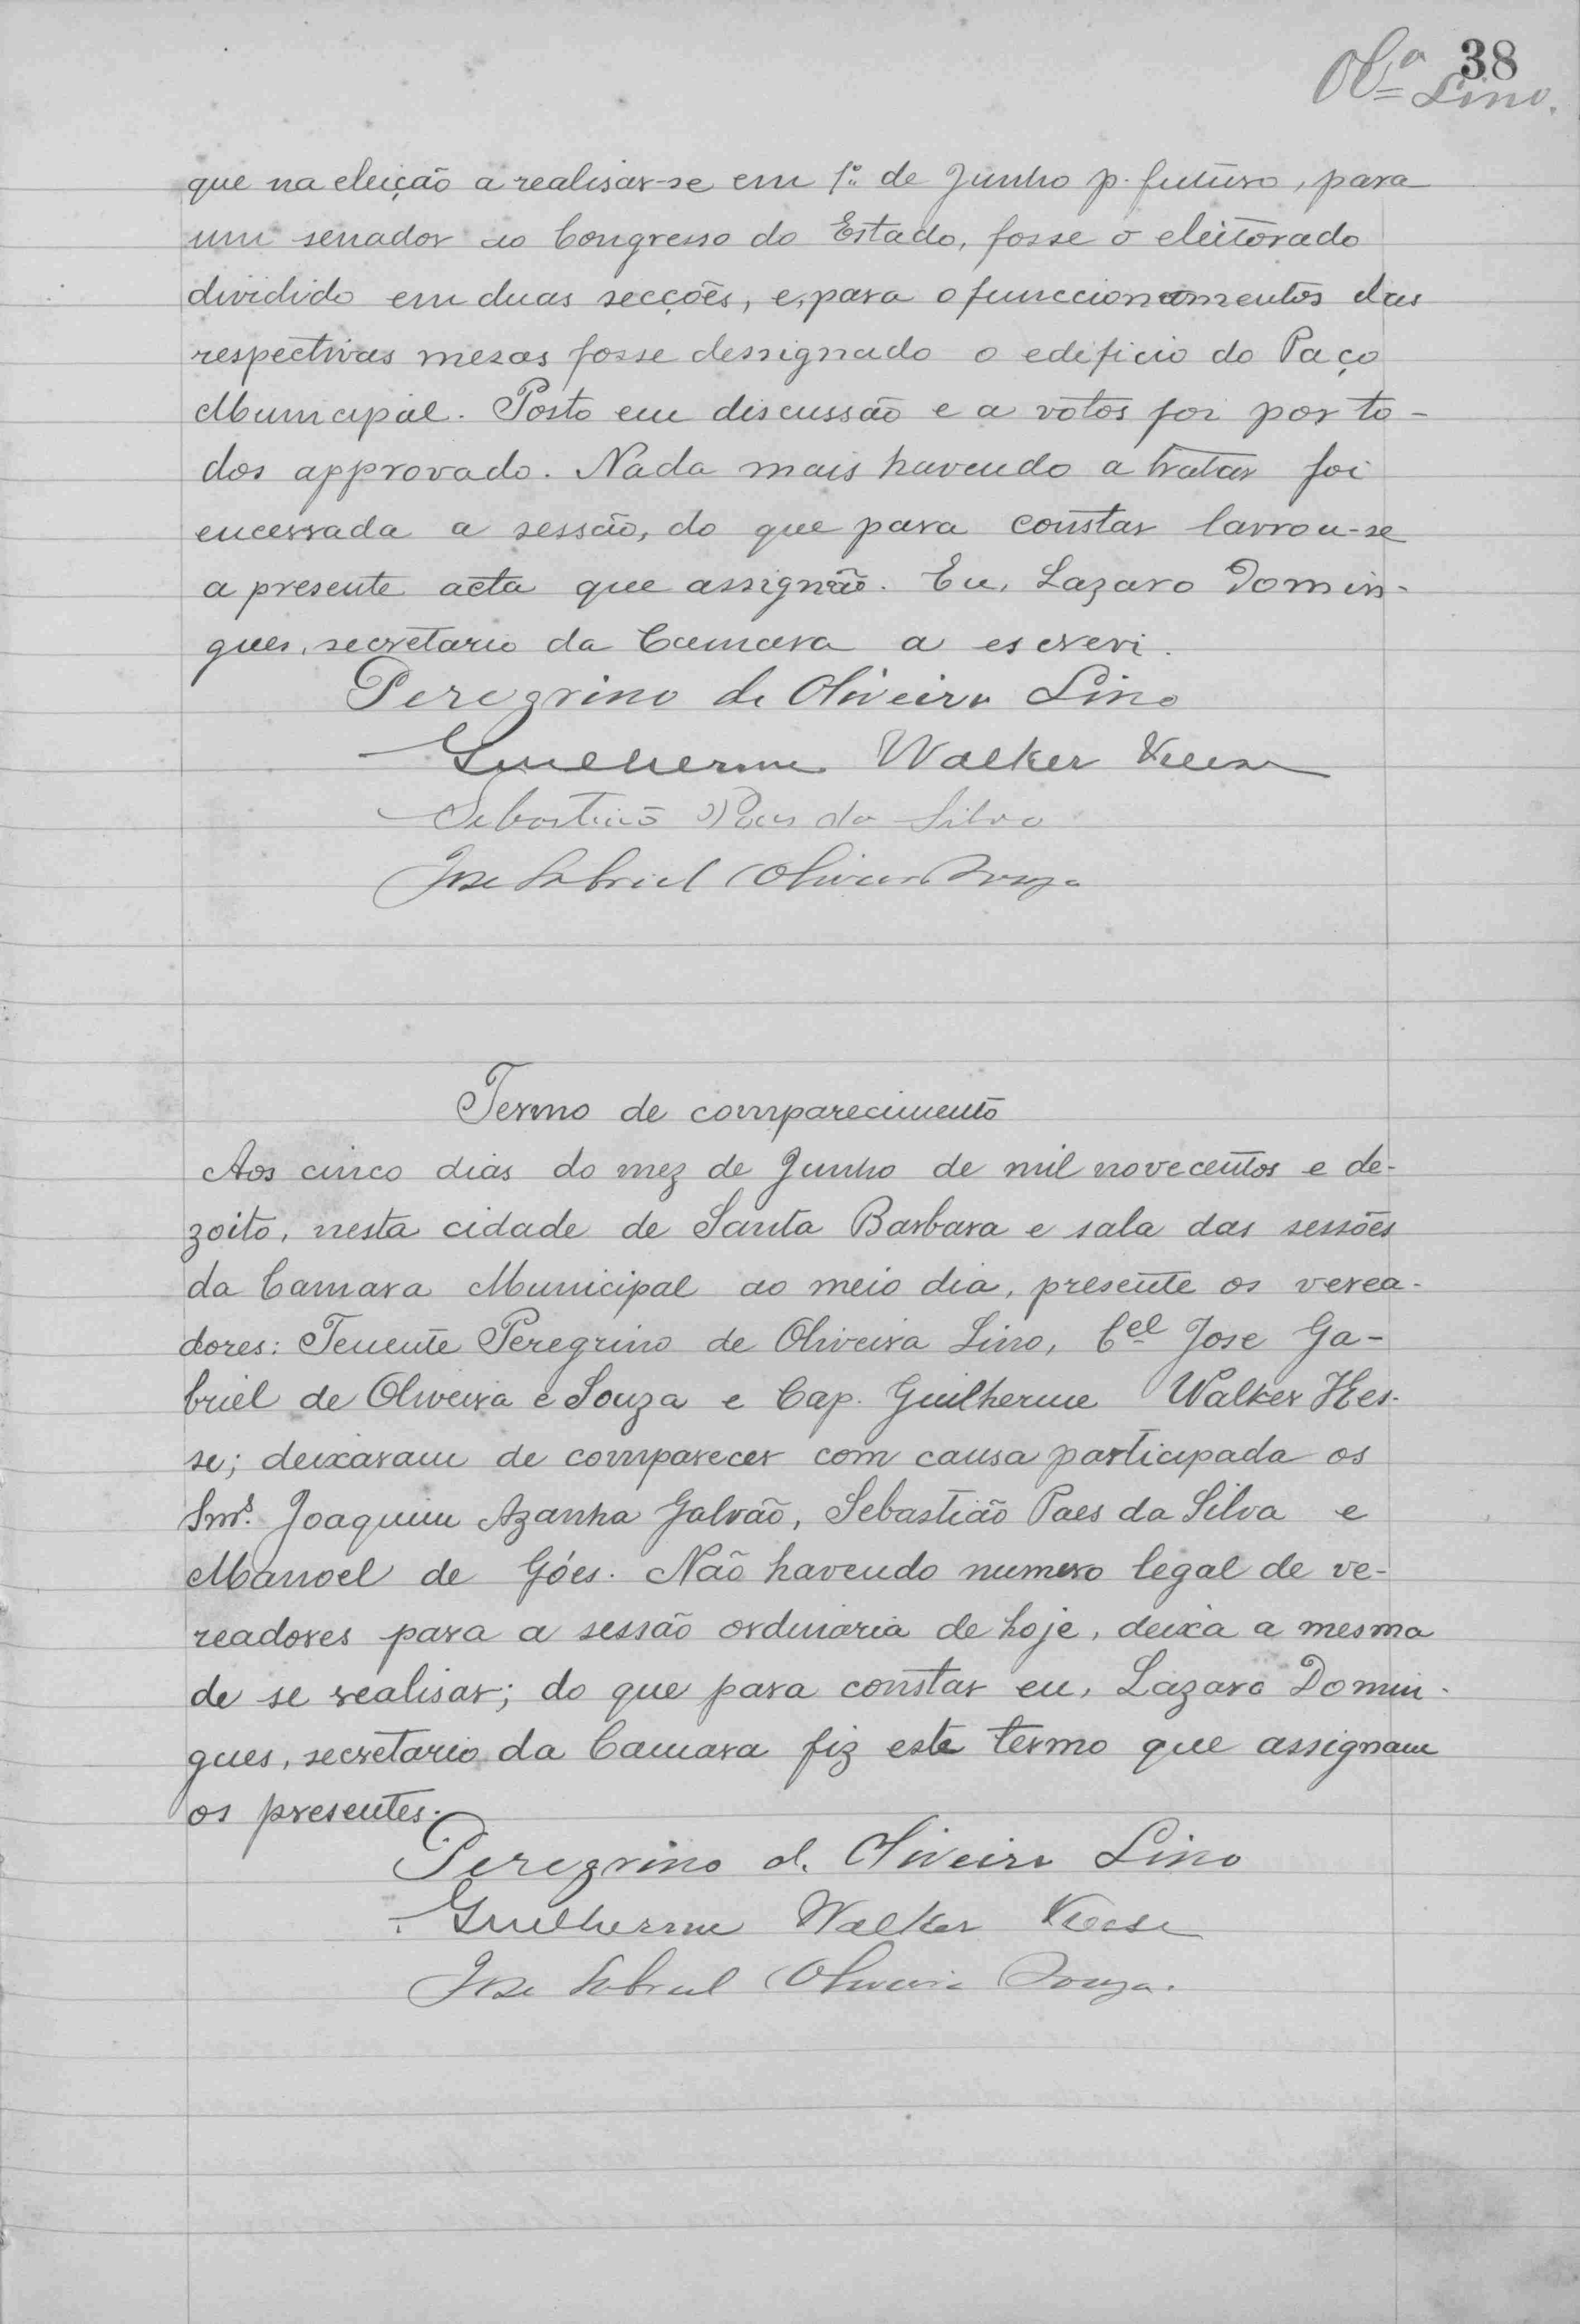 38
Olª Lino.
que na eleição a realisar-se em 1º de Junho p. futuro, para
um senador ao Congresso do Estado, fosse o eleitorado
dividido em duas secções, e, para o funccionamentos das
respectivas mesas fosse dessignado o edificio do Paço
Municipal. Posto em discussão e a votos foi por to-
dos approvado. Nada mais havendo a tratar foi
encerrada a sessão, do que para constar lavrou-se
a presente acta que assignão. Eu, Lazaro Domin-
gues, secretario da Camara a escrevi.
Peregrino de Oliveira Lino
Guilherme Walker
Sebastião Paes da Silva
Jose Gabriel Oliveira Souza
Termo de comparecimento
Aos cinco dias do mez de Junho de mil novecentos e de-
zoito, nesta cidade de Santa Barbara e sala das sessões
da Camara Municipal ao meio dia, presente os verea-
dores: Tenente Peregrino de Oliveira Lino, Cel Jose Ga-
briel de Oliveira e Souza e Cap. Guilherme Walker Hes-
se; deixaram de comparecer com causa participada os
Snrs. Joaquim Azanha Galvão, Sebastião Paes da Silva e
Manoel de Góes. Não havendo numero legal de ve-
readores para a sessão ordinaria de hoje, deixa a mesma
de se realisar; do que para constar eu, Lazaro Domin-
gues, secretario da Camara fiz este termo que assignam
os presentes.
Peregrino d. Oliveira Lino
Guilherme Walker
Jose Gabriel Oliveira Souza.